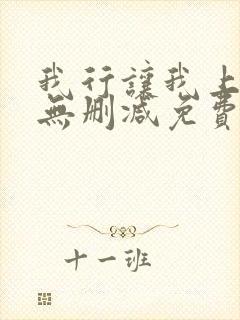 我行讓我上
無刪減免費
十一班